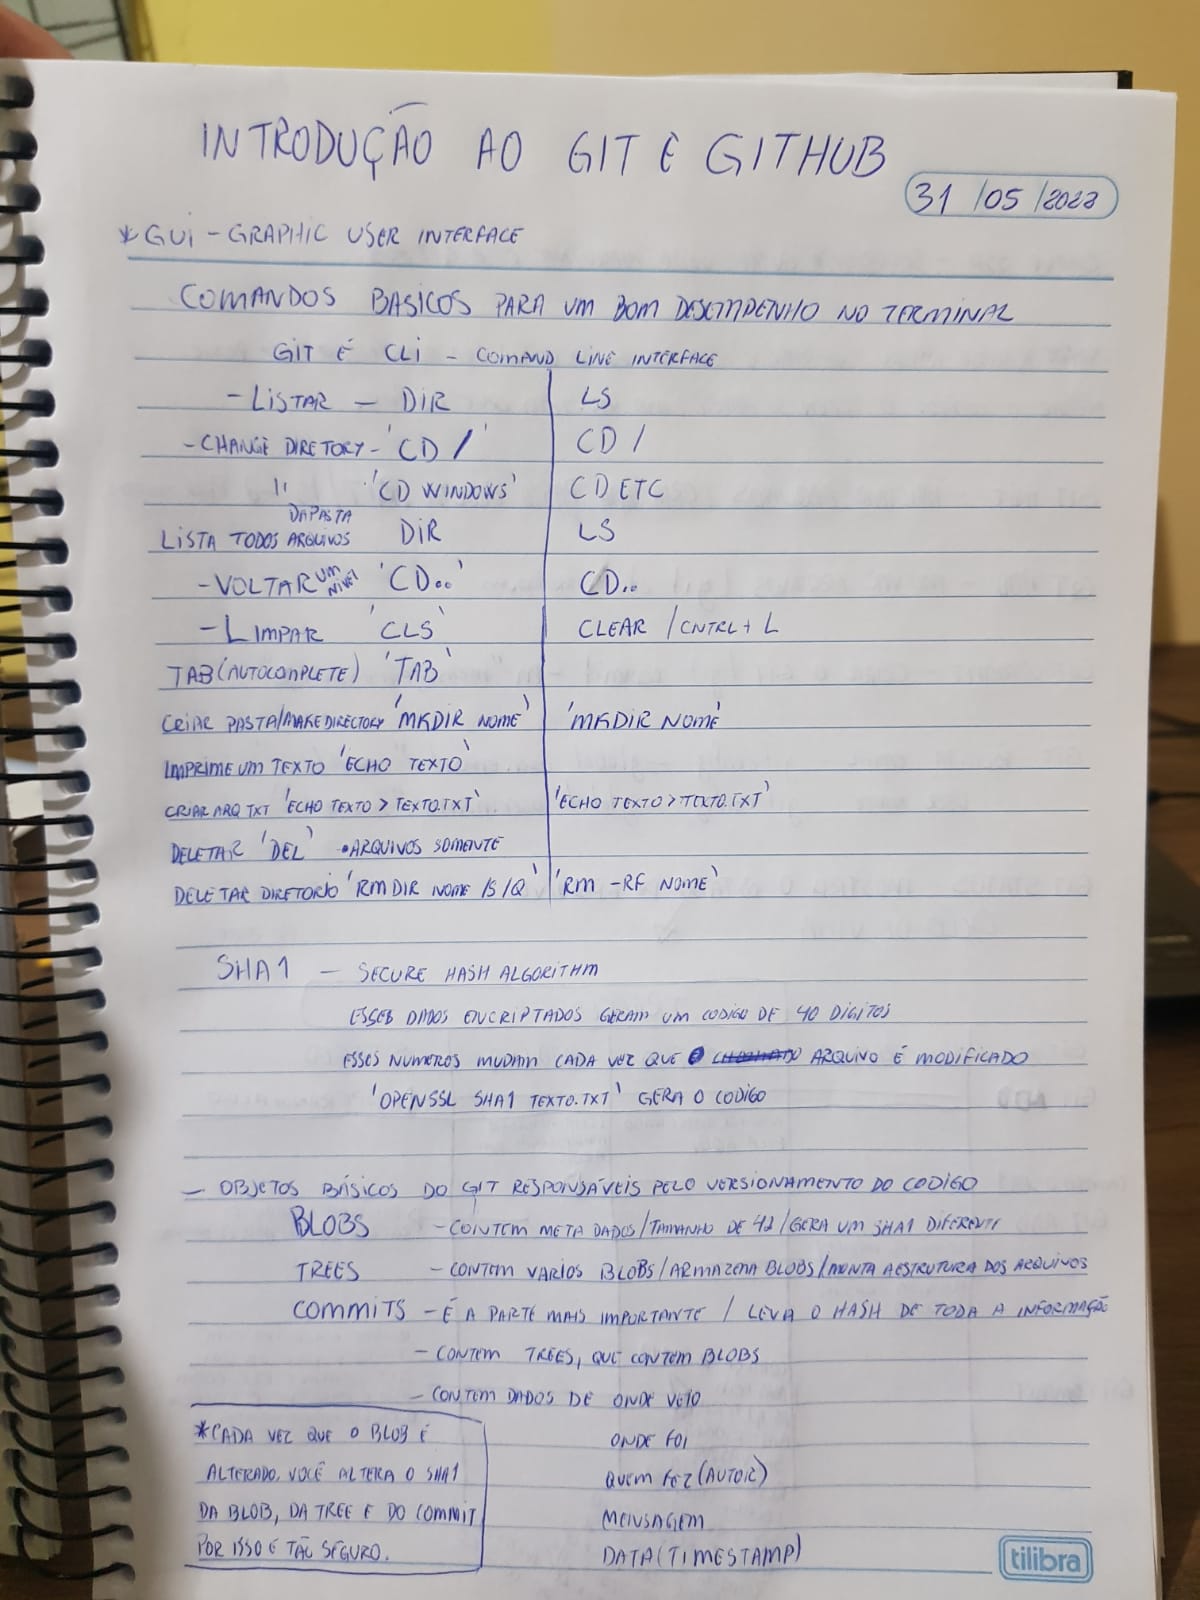 INTRODUÇÃO AO GIT E GITHUB
31/05/2022
*GUI - GRAPHIC USER INTERFACE
COMANDOS BASICOS PARA UM BOM DESEMPENHO NO TERMINAL
GIT É CLI - COMAND LINE INTERFACE
- LISTAR - DIR LS
- CHANGE DIRETORY - 'CD /' CD /
" 'CD WINDOWS' CD ETC
DA PASTA
LISTA TODOS ARQUIVOS DIR LS
- VOLTAR UM NÍVEL 'CD..' CD..
- LIMPAR 'CLS' CLEAR / CNTRL + L
TAB (AUTOCOMPLETE) 'TAB'
CRIAR PASTA/MAKE DIRECTORY 'MKDIR NOME' 'MKDIR NOME'
IMPRIME UM TEXTO 'ECHO TEXTO'
CRIAR ARQ TXT 'ECHO TEXTO > TEXTO.TXT' 'ECHO TEXTO > TEXTO.TXT'
DELETAR 'DEL' •ARQUIVOS SOMENTE
DELETAR DIRETORIO 'RMDIR NOME /S /Q' 'RM -RF NOME'
SHA1 - SECURE HASH ALGORITHM
ESSES DADOS ENCRIPTADOS GERAM UM CODIGO DE 40 DIGITOS
ESSES NUMEROS MUDAM CADA VEZ QUE O ARQUIVO É MODIFICADO
'OPENSSL SHA1 TEXTO.TXT' GERA O CODIGO
- OBJETOS BÁSICOS DO GIT RESPONSÁVEIS PELO VERSIONAMENTO DO CODIGO
BLOBS - CONTEM META DADOS/TAMANHO DE 42/GERA UM SHA1 DIFERENTE
TREES - CONTEM VARIOS BLOBS/ARMAZENA BLOBS/MONTA A ESTRUTURA DOS ARQUIVOS
COMMITS - É A PARTE MAIS IMPORTANTE / LEVA O HASH DE TODA A INFORMAÇÃO
- CONTEM TREES, QUE CONTEM BLOBS
- CONTEM DADOS DE ONDE VEIO
ONDE FOI
QUEM FEZ (AUTOR)
MENSAGEM
DATA (TIMESTAMP)
*CADA VEZ QUE O BLOB É
ALTERADO, VOCÊ ALTERA O SHA1
DA BLOB, DA TREE E DO COMMIT
POR ISSO É TÃO SEGURO.
tilibra